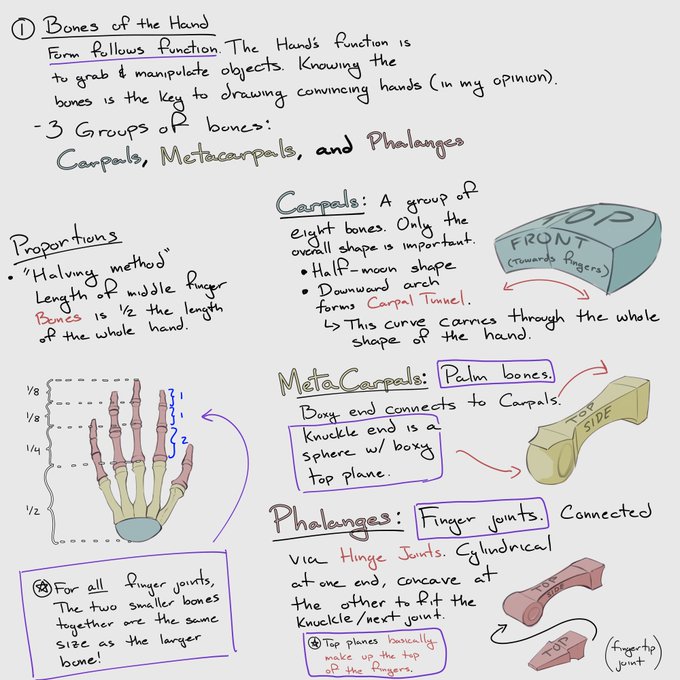 ① Bones of the Hand
Form follows function. The Hand's function is
to grab & manipulate objects. Knowing the
bones is the key to drawing convincing hands (in my opinion).
- 3 Groups of bones:
Carpals, Metacarpals, and Phalanges
Proportions
• "Halving method"
Length of middle finger
Bones is 1/2 the length
of the whole hand.
1/8
1/8
1/4
1/2
1
1
2
☆ For all finger joints,
The two smaller bones
together are the same
size as the larger
bone!
Carpals: A group of
eight bones. Only the
overall shape is important.
• Half-moon shape
• Downward arch
forms Carpal Tunnel.
↳ This curve carries through the whole
shape of the hand.
TOP
FRONT
(Towards fingers)
MetaCarpals: Palm bones.
Boxy end connects to Carpals.
Knuckle end is a
sphere w/ boxy
top plane.
TOP
SIDE
Phalanges: Finger joints. Connected
via Hinge Joints. Cylindrical
at one end, concave at
the other to fit the
Knuckle/next joint.
☆ Top planes basically
make up the top
of the fingers.
TOP
SIDE
TOP
(fingertip
joint)